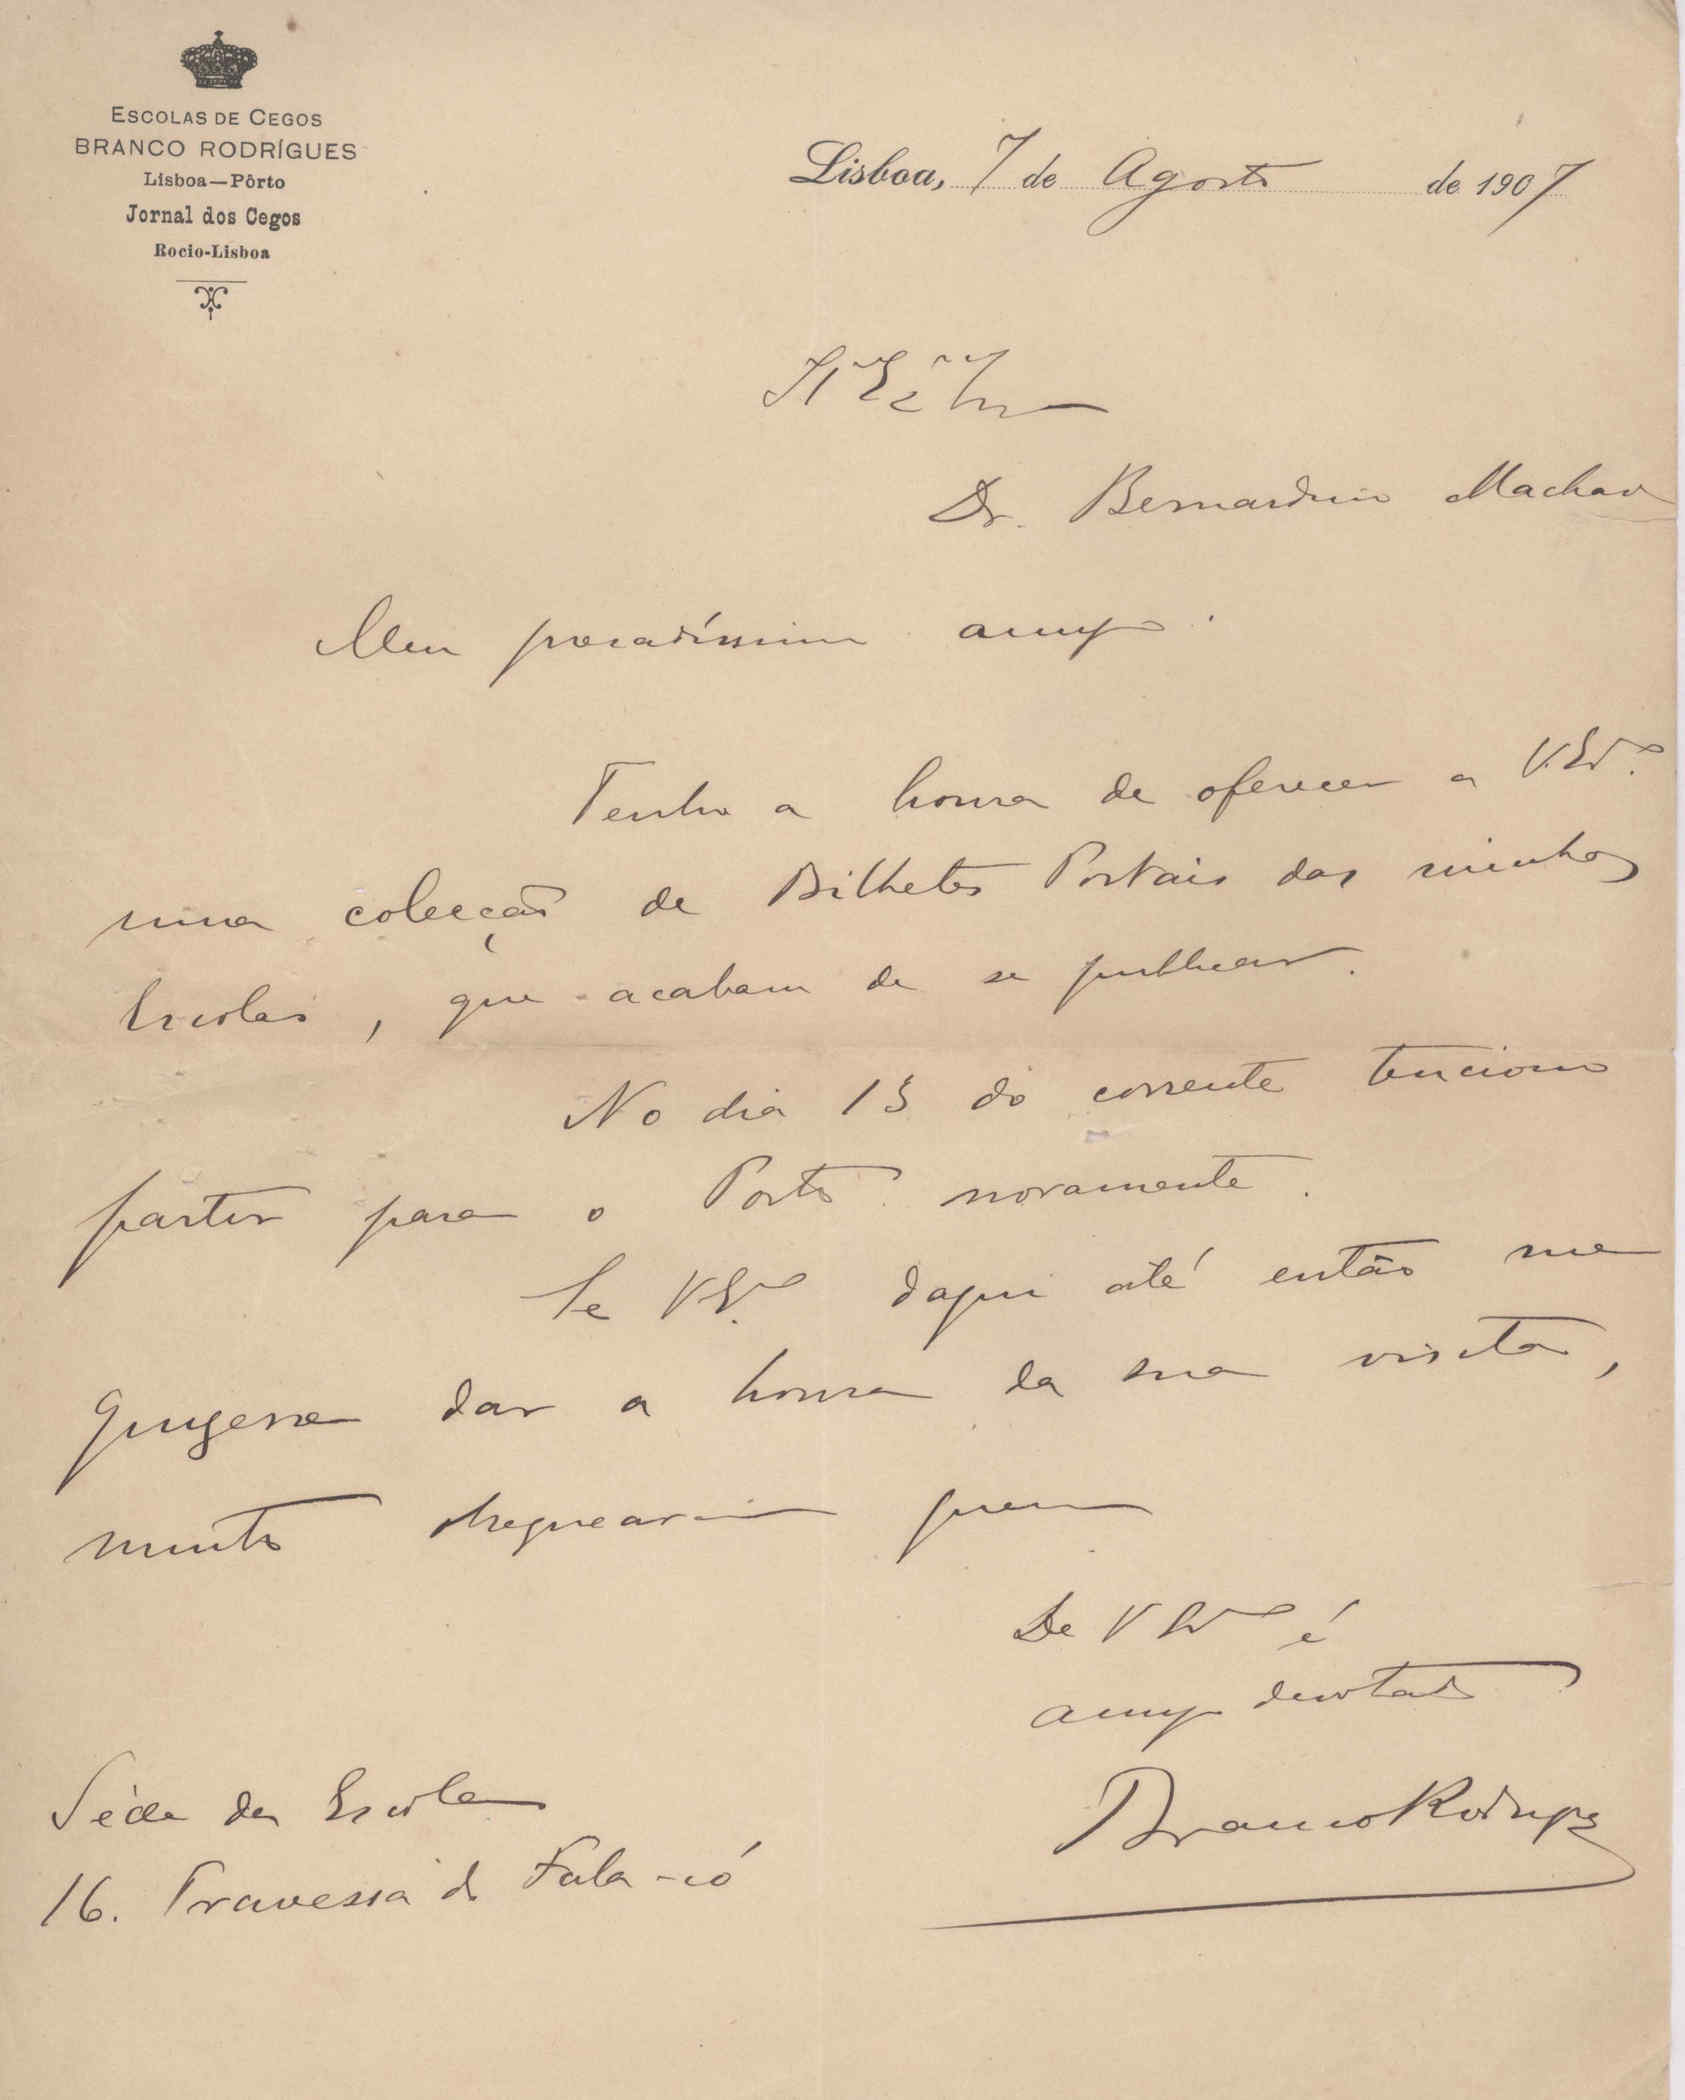 ESCOLAS DE CEGOS
BRANCO RODRÍGUES
Lisboa—Pôrto
Jornal dos Cegos
Rocio-Lisboa
Lisboa, 7 de Agosto de 1907
Dr. Bernardino Machado
Meu presadíssimo amigo.
Tenho a honra de oferecer a V. Ex.ª
uma colecção de Bilhetes Postais das minhas
Escolas, que acabam de se publicar.
No dia 13 do corrente tenciono
partir para o Porto novamente.
Se V Ex.ª daqui até então me
quizesse dar a honra da sua visita,
muito
De V Ex.ª é
amigo devotado
Branco Rodrigues
Séde da Escola
16. Travessa do Fala-só